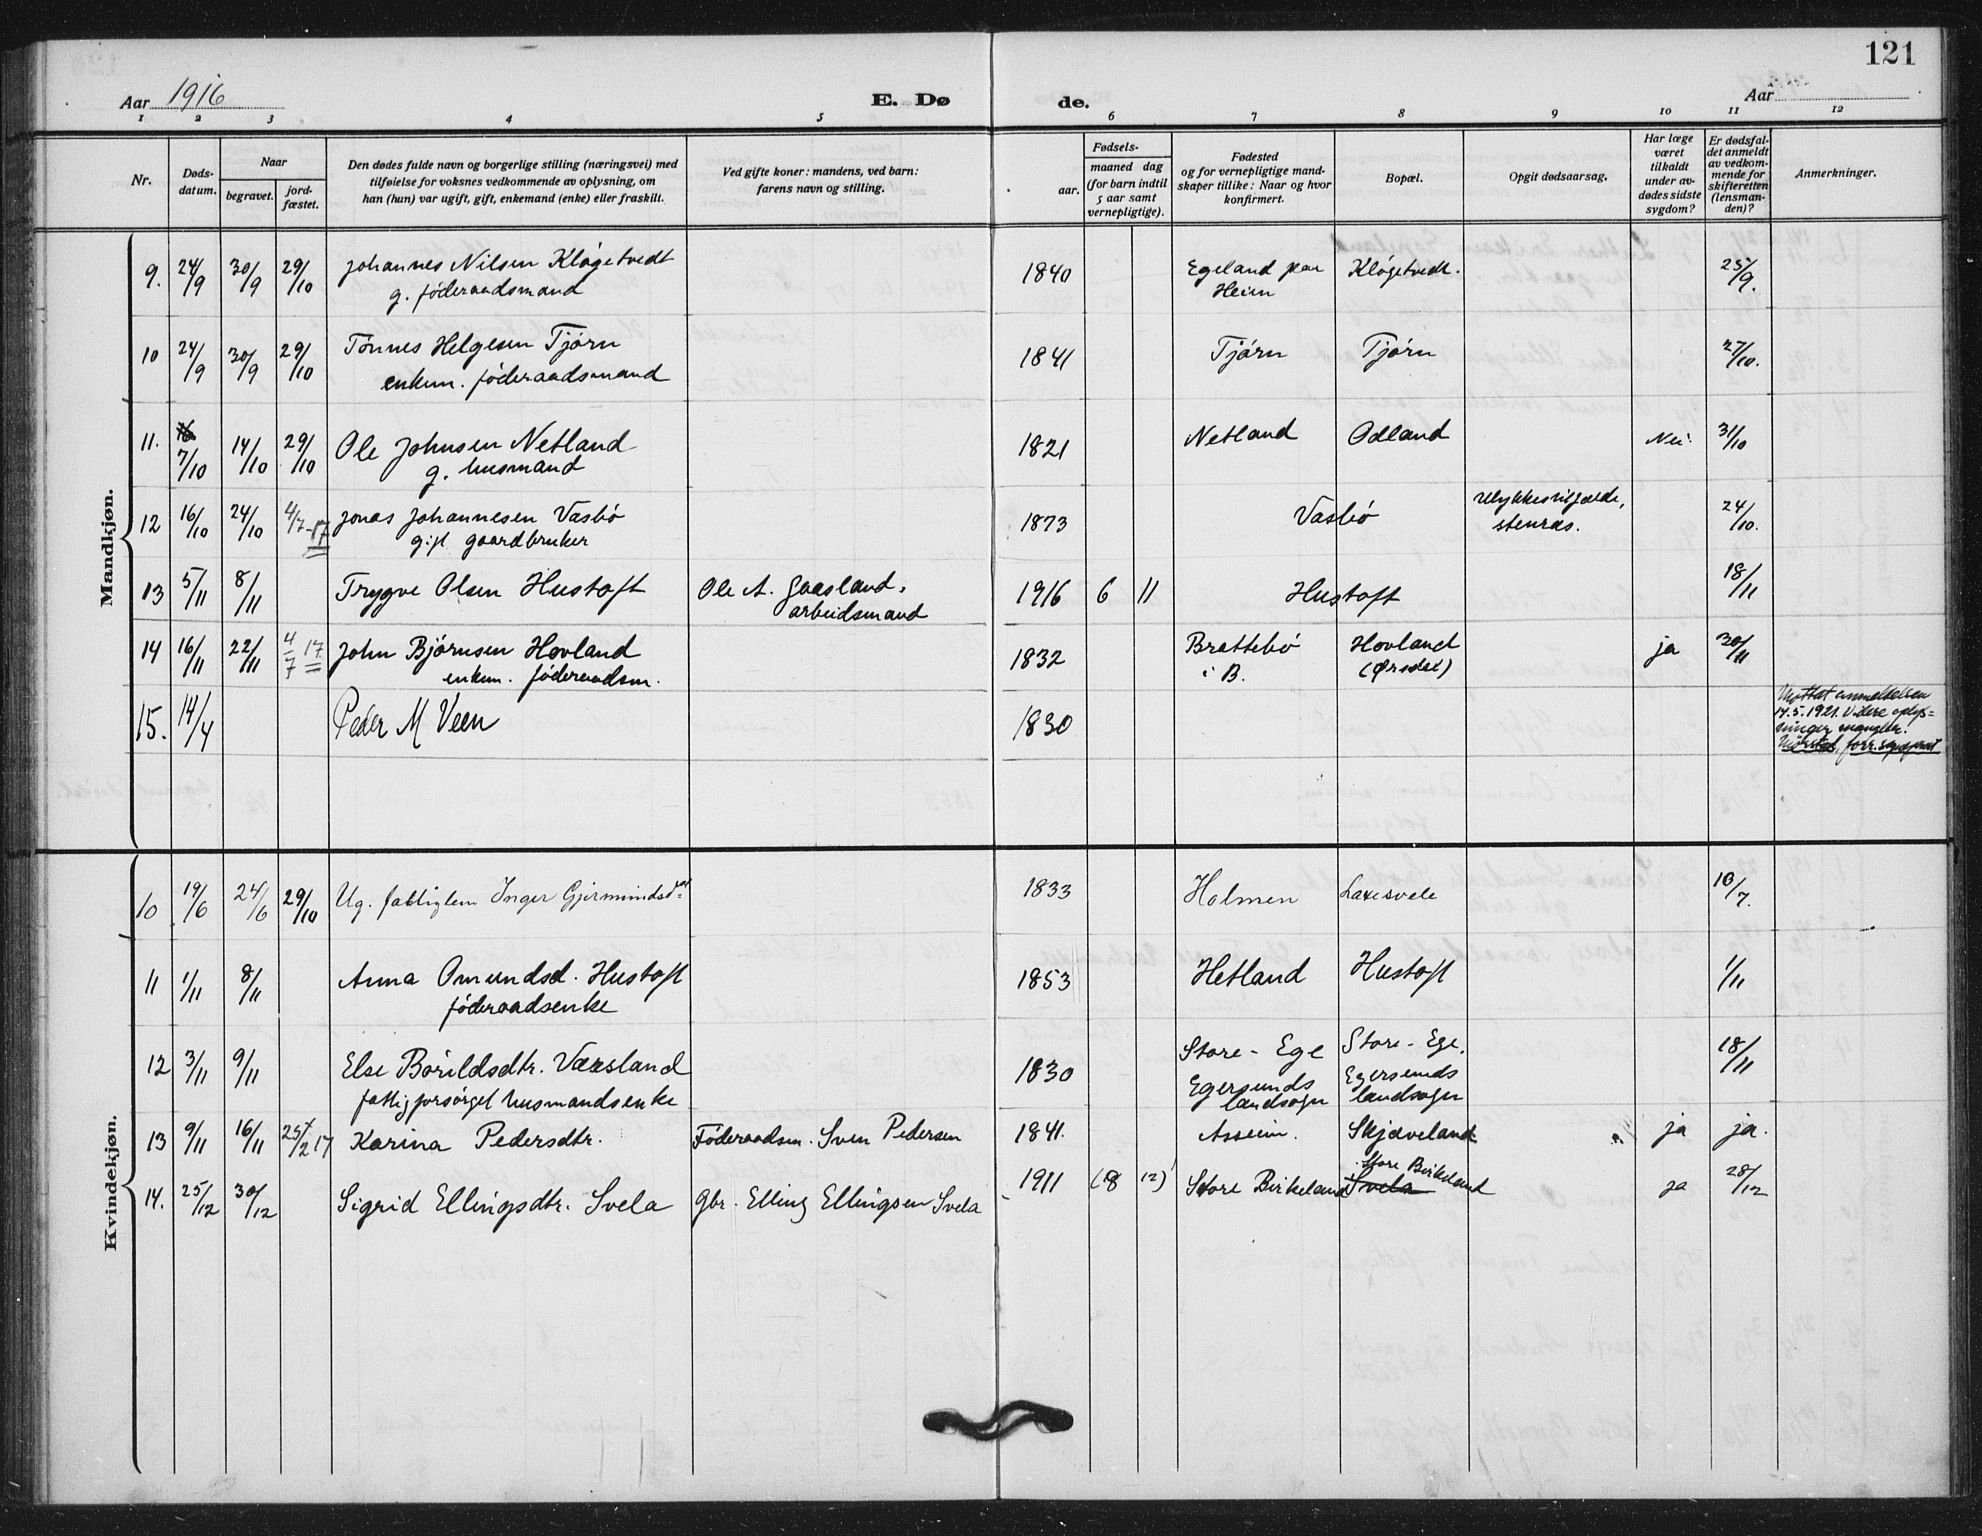 121
Aar 1916
E. Dø
de.
Aar
1 2 3 4 5 6 7 8 9 10 11 12
Nr.
Døds-
datum.
Naar
begravet.
jord-
fæstet.
Den dødes fulde navn og borgerlige stilling (næringsvei) med
tilføielse for voksnes vedkommende av oplysning, om
han (hun) var ugift, gift, enkemand (enke) eller fraskilt.
Ved gifte koner: mandens, ved barn:
farens navn og stilling.
Fødsels-
aar.
maaned dag
(for barn indtil
5 aar samt
vernepligtige).
Fødested
og for vernepligtige mand-
skaper tillike: Naar og hvor
konfirmert.
Bopæl.
Opgit dødsaarsag.
Har læge
været
tilkaldt
under av-
dødes sidste
sygdom?
Er dødsfal-
det anmeldt
av vedkom-
mende for
skifteretten
(lensman-
den)?
Anmerkninger.
Mandkjøn.
9. 24/9 30/9 29/10 Johannes Nilsen Kløgetvedt 1840 Egeland paa Kløgetvedt. 25/9.
g. føderaadsmand Heien
10 24/9 30/9 29/10 Tønnes Helgesen Tjørn 1841 Tjørn Tjørn 27/10.
enkem. føderaadsmand
11. 7/10 14/10 29/10 Ole Johnsen Netland 1821 Netland Odland Nei 31/10
g. husmand
12 16/10 24/10 4/7-17 Jonas Johannesen Vasbø 1873 Vasbø 24/10.
gift gaardbruker stenras.
13 5/11 8/11 Trygve Olsen Hustoft Ole A. Gaasland, 1916 6 11 Hustoft 18/11
arbeidsmand
14 16/11 22/11 4/7 17 John Bjørnsen Hovland 1832 Brattebø Hovland ja 30/11
enkem. føderaadsm. i B. (Ørsdal)
15. 14/4 Peder M Veen 1830
Mottat anmeldelsen
14.5.1921. Videre oplys=
ninger mangler.
Kvindekjøn.
10 19/6 24/6 29/10 Ug. fattiglem Inger Gjermundsdat 1833 Holmen Laxesvele 10/7.
11 1/11 8/11 Anna Omundsd. Hustoft 1853 Hetland Hustoft 1/11
føderaadsenke
12 3/11 9/11 Else Børildsdtr. Væxsland 1830 Store-Ege Store-Ege. 18/11
fattigforsørget husmandsenke Egersunds Egersunds
landsogn landsogn
13 9/11 16/11 25/2 17 Karina Pedersdtr. Føderaadsm. Sven Pedersen 1841. Asseim. Skjæveland ja ja.
14. 25/12 30/12 Sigrid Ellingsdtr. Svela Gbr. Elling Ellingsen Svela 1911 (8 12) Store Birkeland Svela Store Birkeland ja 28/12